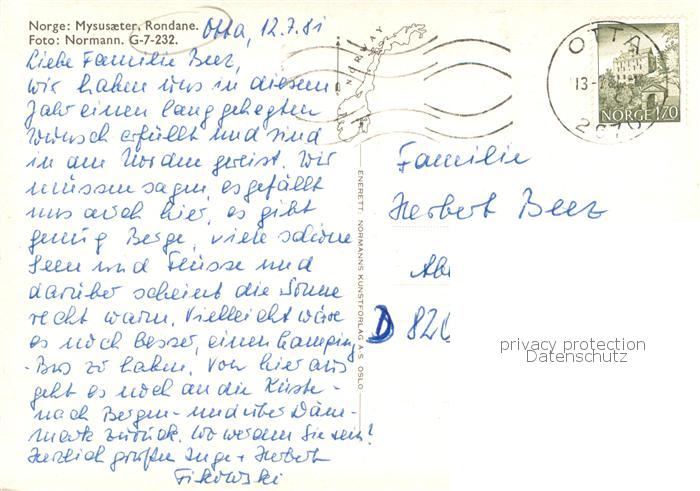 Norge: Mysusæter, Rondane.
Foto: Normann. G-7-232.
Otta, 12.7.81
Liebe Familie Beez,
wir haben uns in diesem
Jahr einen langgehegten
Wunsch erfüllt und sind
in den Norden gereist. Wir
müssen sagen, es gefällt
uns auch hier, es gibt
genug Berge, viele schöne
Seen und Flüsse und
darüber scheint die Sonne
recht warm. Vielleicht wäre
es noch besser, einen Camping
-Bus zu haben. Von hier aus
geht es noch an die Küste -
nach Bergen - und über Däne-
mark zurück. Wo werden Sie sein?
Herzlich grüßen Inge + Herbert
NORWAY
ENERETT: NORMANNS KUNSTFORLAG A·S OSLO
OTTA
13-
2670
NORGE 170
Familie
Herbert Beez
D 820
privacy protection
Datenschutz